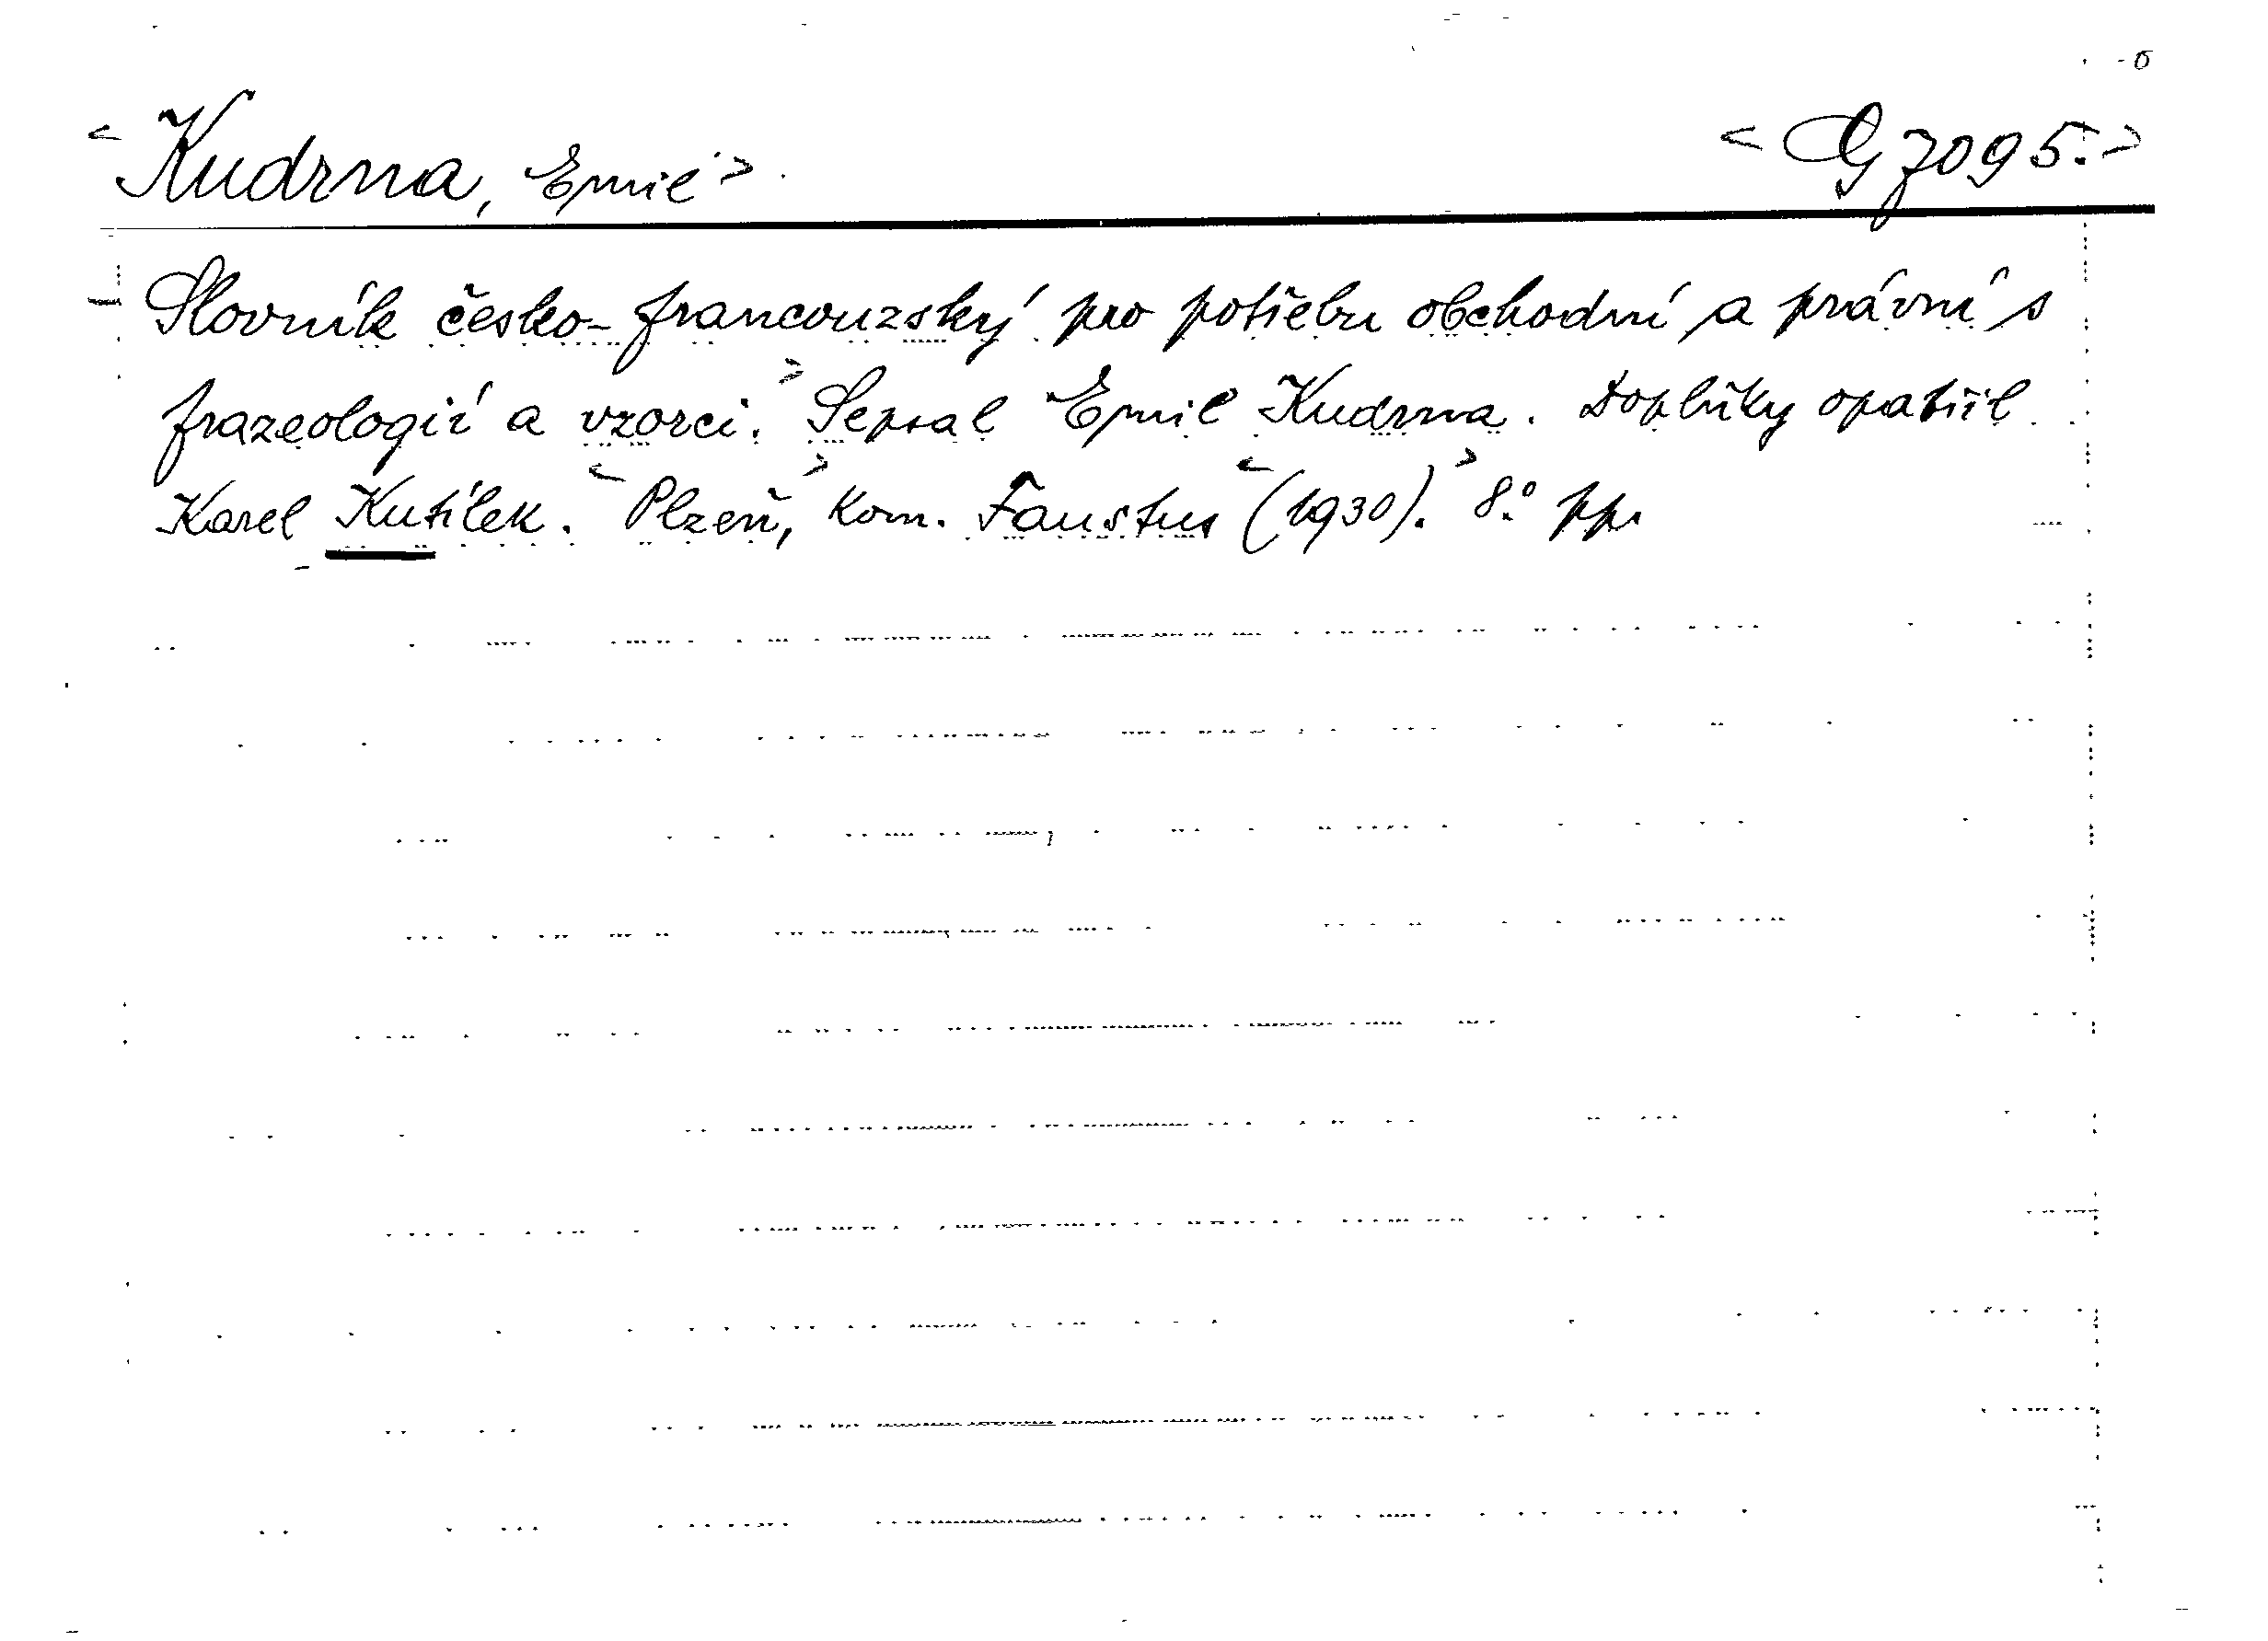 <Kudrna, Emil> <G 7095.>
Slovník česko-francouzský pro potřebu obchodní a právní s
frazeologií a vzorci.> Sepsal Emil Kudrna. Doplňky opatřil
Karel Kutílek. <Plzeň,> Kom. Faustus <(1930).> 8° ppr